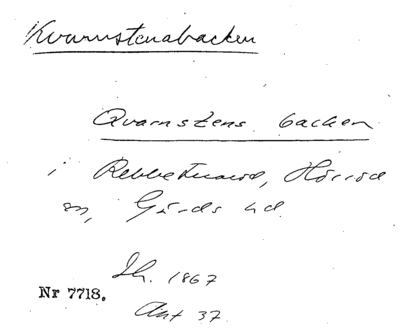 Kvarnstensbacken
Qvarnstens backen
i Rebbetuaröd, Hörröd
sn, Gärds hd.
Lh. 1867
Nr 7718.
Akt 37